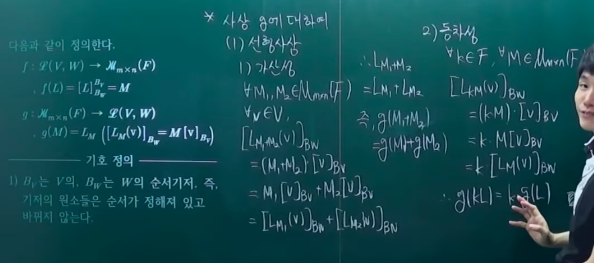 다음과 같이 정의한다.
f : ℒ(V, W) → ℳₘₓₙ(F)
, f(L) = [L]_{B_W}^{B_V} = M
g : ℳₘₓₙ(F) → ℒ(V, W)
, g(M) = L_M ([L_M(v)]_{B_W} = M[v]_{B_V})
기호 정의
1) B_V는 V의, B_W는 W의 순서기저. 즉,
기저의 원소들은 순서가 정해져 있고
바뀌지 않는다.
* 사상 g에 대하여
(1) 선형사상
1) 가산성
∀M₁, M₂∈ℳₘₓₙ(F)
∀v∈V,
[L_{M₁+M₂}(v)]_{BW}
=(M₁+M₂)·[v]_{BV}
=M₁[v]_{BV}+M₂[v]_{BV}
=[L_{M₁}(v)]_{BW}+[L_{M₂}(v)]_{BW}
∴ L_{M₁+M₂}
=L_{M₁}+L_{M₂}
즉, g(M₁+M₂)
=g(M₁)+g(M₂)
2) 동차성
∀k∈F, ∀M∈ℳₘₓₙ(F)
[L_{kM}(v)]_{BW}
=(kM)·[v]_{BV}
=k·M[v]_{BV}
=k[L_M(v)]_{BW}
∴ g(kL)=k·g(L)